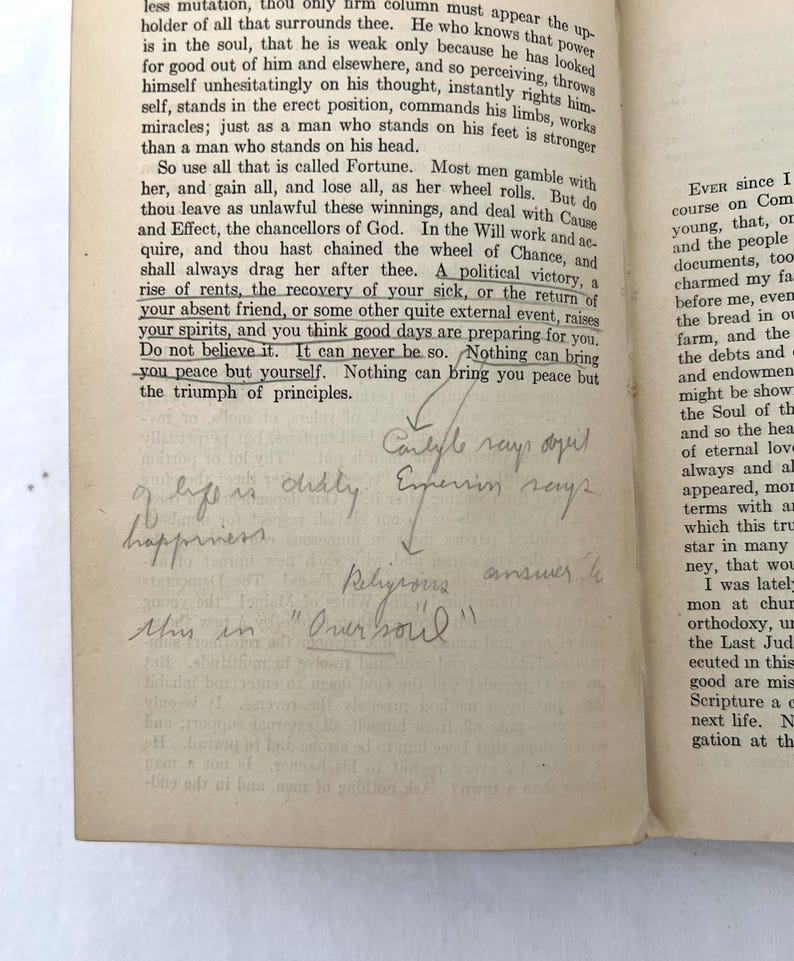 less mutation, thou only firm column must appear the up-
holder of all that surrounds thee. He who knows that power
is in the soul, that he is weak only because he has looked
for good out of him and elsewhere, and so perceiving, throws
himself unhesitatingly on his thought, instantly rights him-
self, stands in the erect position, commands his limbs, works
miracles; just as a man who stands on his feet is stronger
than a man who stands on his head.
So use all that is called Fortune. Most men gamble with
her, and gain all, and lose all, as her wheel rolls. But do
thou leave as unlawful these winnings, and deal with Cause
and Effect, the chancellors of God. In the Will work and ac-
quire, and thou hast chained the wheel of Chance, and
shall always drag her after thee. A political victory, a
rise of rents, the recovery of your sick, or the return of
your absent friend, or some other quite external event, raises
your spirits, and you think good days are preparing for you.
Do not believe it. It can never be so. Nothing can bring
you peace but yourself. Nothing can bring you peace but
the triumph of principles.
Carlyle says object
of life is duty Emerson says
happiness
Religious answer to
this in "Over soul"
EVER since I
course on Com
young, that, on
and the people
documents, too
charmed my fa
before me, even
the bread in ou
farm, and the
the debts and
and endowmen
might be show
the Soul of th
and so the hea
of eternal love
always and al
appeared, mor
terms with an
which this tru
star in many
ney, that wou
I was lately
mon at chur
orthodoxy, un
the Last Jud
ecuted in this
good are mis
Scripture a c
next life. N
gation at th